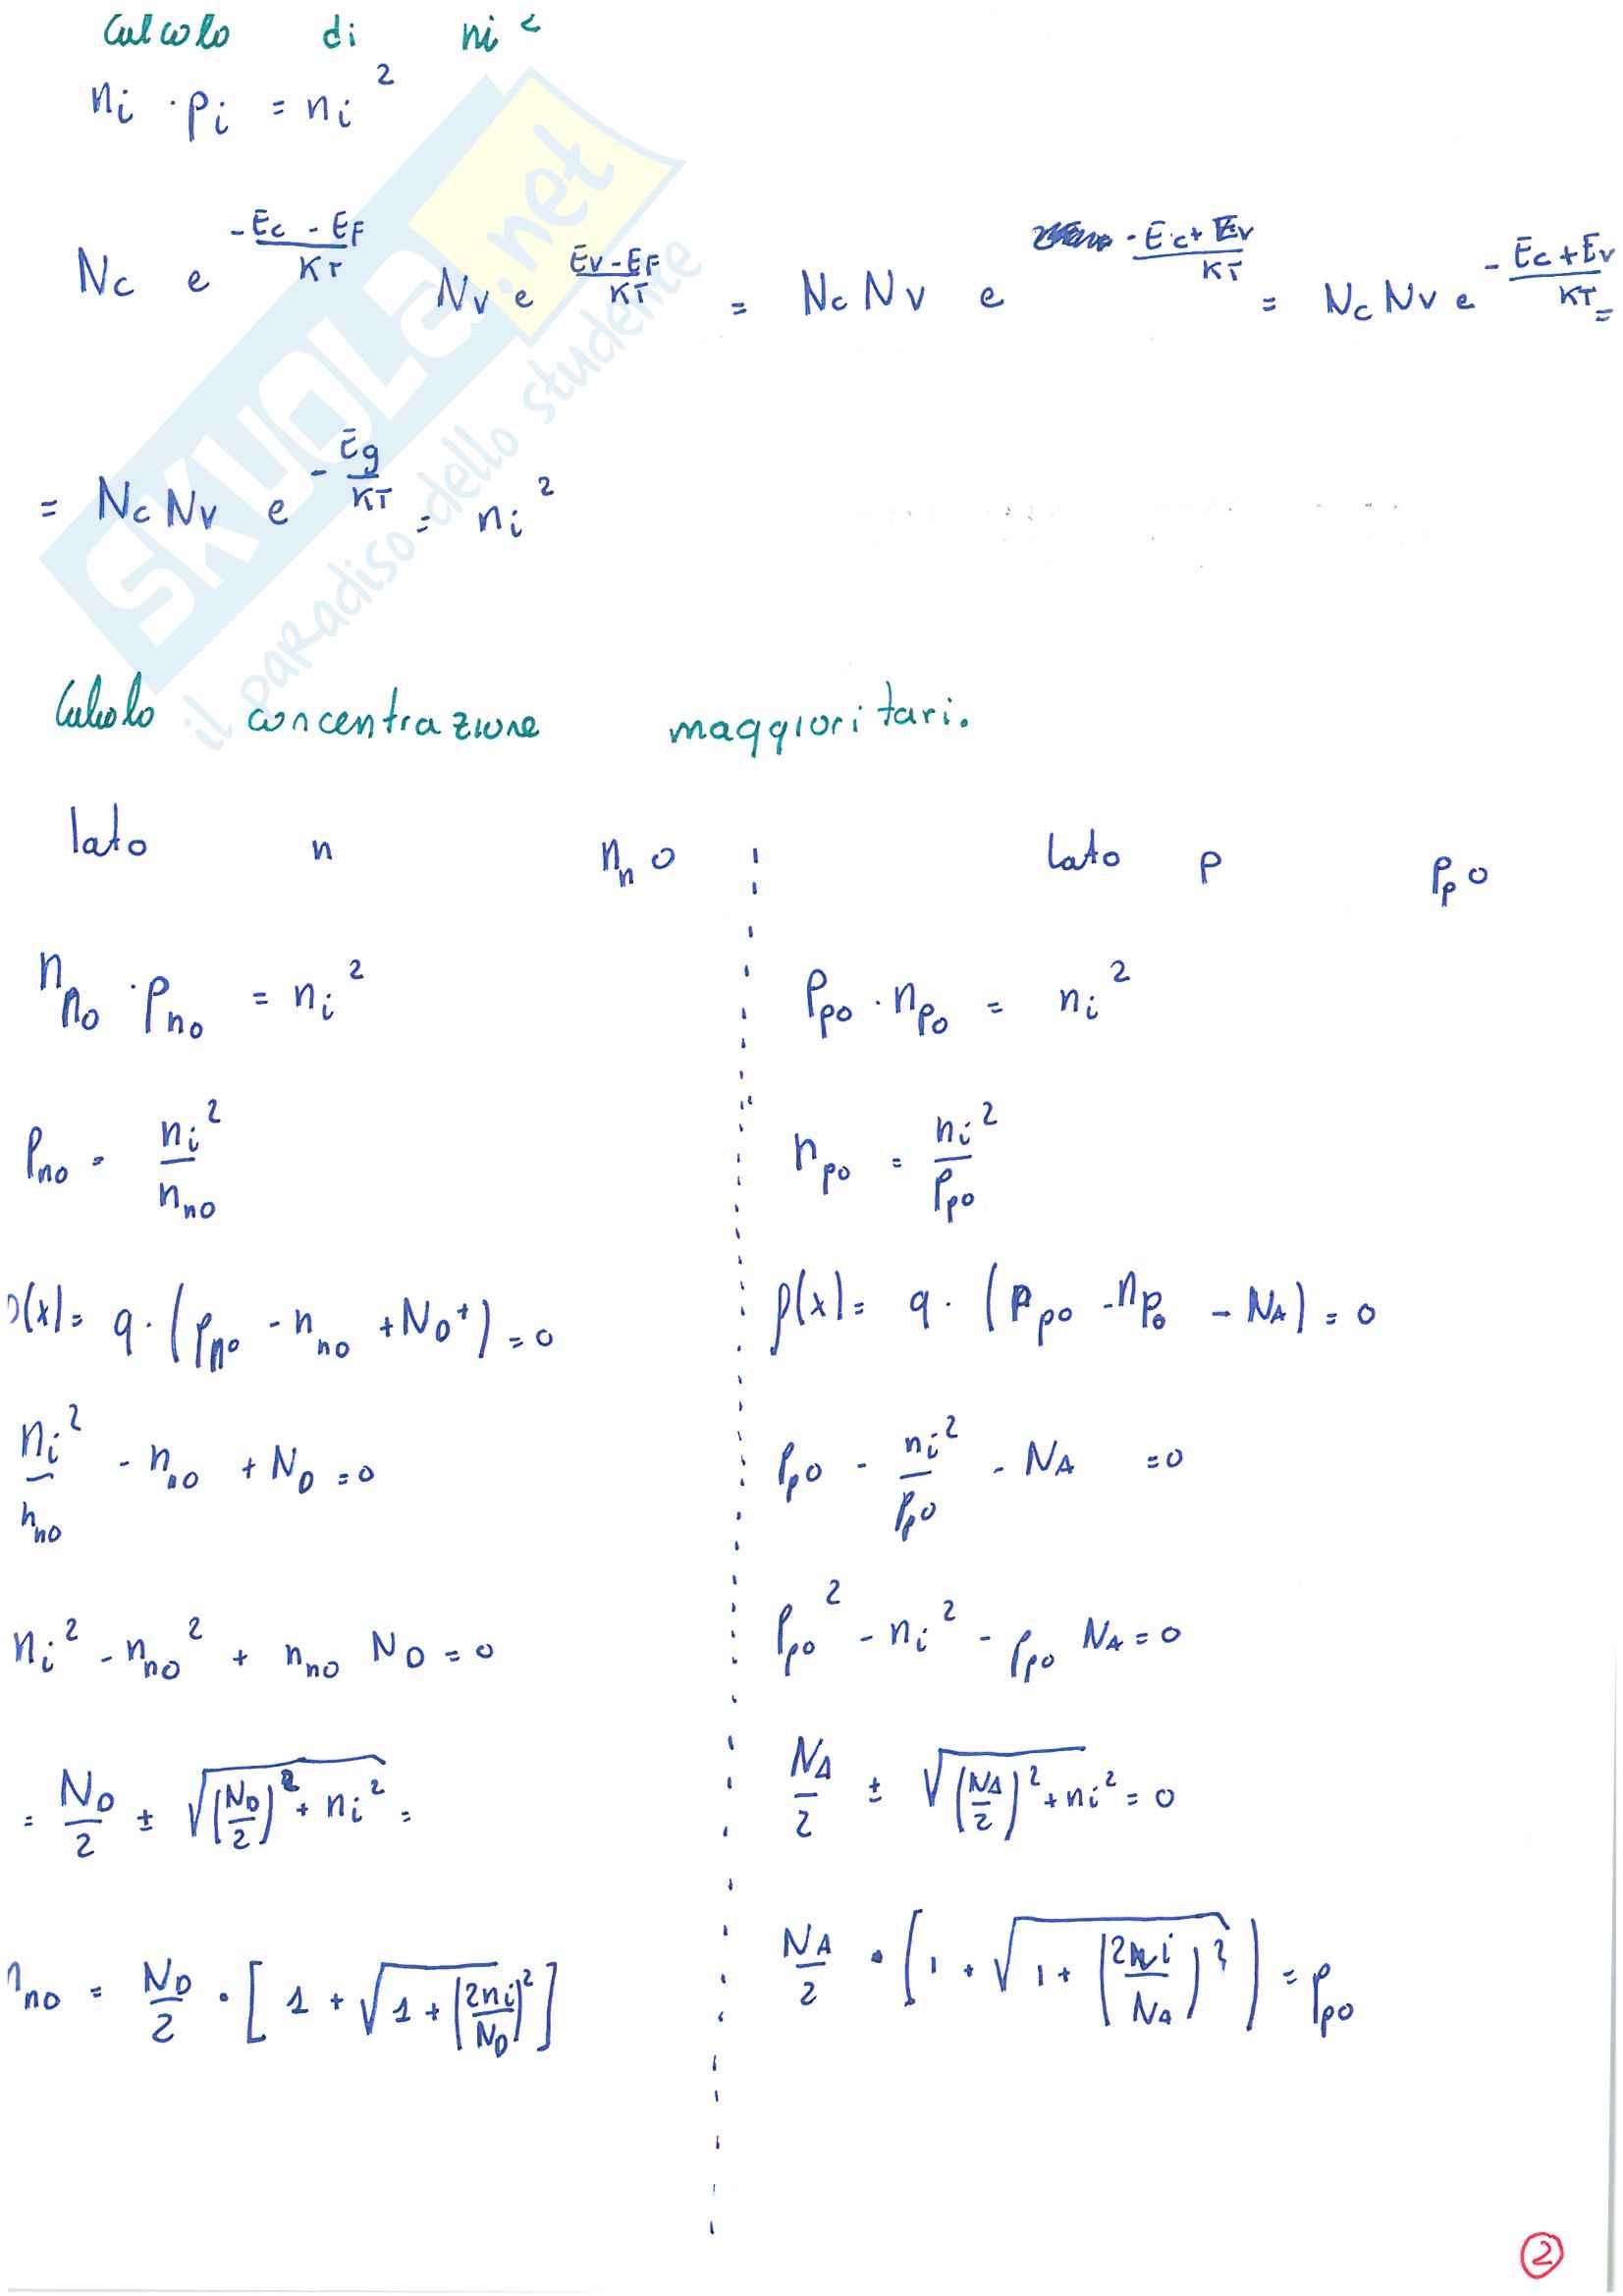 Calcolo di ni²
ni · pi = ni²
Nc e^(-Ec - EF / KT) Nv e^(Ev - EF / KT) = Nc Nv e^(-Ec + Ev / KT) = Nc Nv e^(-Ec + Ev / KT) =
= Nc Nv e^(-Eg / KT) = ni²
SKUOLA.net
il paradiso dello studente
Calcolo concentrazione maggioritari.
lato n nn0
nn0 · pn0 = ni²
pn0 = ni² / nn0
ρ(x) = q · (pn0 - nn0 + ND⁺) = 0
ni² / nn0 - nn0 + ND = 0
ni² - nn0² + nn0 ND = 0
= ND/2 ± √((ND/2)² + ni²) =
nn0 = ND/2 · [1 + √(1 + (2ni/ND)²)]
lato p pp0
pp0 · np0 = ni²
np0 = ni² / pp0
ρ(x) = q · (pp0 - np0 - NA) = 0
pp0 - ni² / pp0 - NA = 0
pp0² - ni² - pp0 NA = 0
NA/2 ± √((NA/2)² + ni²) = 0
NA/2 · [1 + √(1 + (2ni/NA)²)] = pp0
2